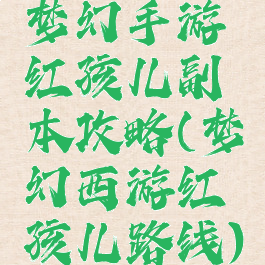 梦幻手游
红孩儿副
本攻略(梦
幻西游红
孩儿路线)